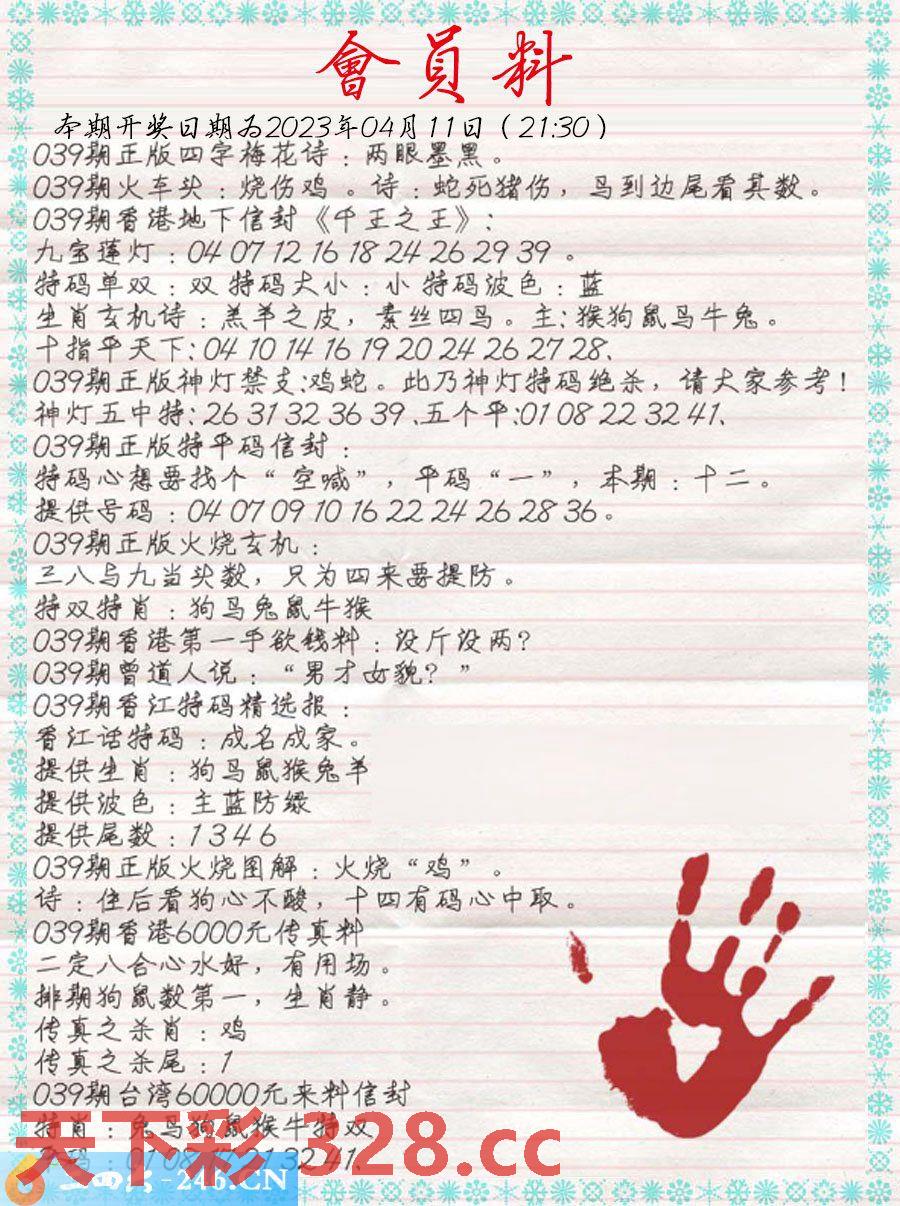 會員料
本期开奖日期为2023年04月11日（21:30）
039期正版四字梅花诗：两眼墨黑。
039期火车头：烧伤鸡 。诗：蛇死猪伤，马到边尾看其数。
039期香港地下信封《千王之王》:
九宝莲灯：04 07 12 16 18 24 26 29 39 。
特码单双：双 特码大小：小 特码波色：蓝
生肖玄机诗：羔羊之皮，素丝四马。主:猴狗鼠马牛兔。
十指平天下:04 10 14 16 19 20 24 26 27 28、
039期正版神灯禁支:鸡蛇。此乃神灯特码绝杀，请大家参考！
神灯五中特: 26 31 32 36 39 、五个平:01 08 22 32 41、
039期正版特平码信封：
特码心想要找个“ 空喊”，平码“一”，本期：十二。
提供号码：04 07 09 10 16 22 24 26 28 36。
039期正版火烧玄机：
三八与九当头数，只为四来要提防。
特双特肖：狗马兔鼠牛猴
039期香港第一手欲钱料：没斤没两？
039期曾道人说：“男才女貌？”
039期香江特码精选报：
香江话特码：成名成家。
提供生肖：狗马鼠猴兔羊
提供波色：主蓝防绿
提供尾数：1 3 4 6
039期正版火烧图解：火烧“鸡”。
诗：住后看狗心不酸，十四有码心中取。
039期香港6000元传真料
二定八合心水好，有用场。
排期狗鼠数第一，生肖静。
传真之杀肖：鸡
传真之杀尾：1
039期台湾60000元来料信封
特肖：兔马狗鼠猴牛特双
01 08 32 41、
天下彩 328.cc
-246.CN